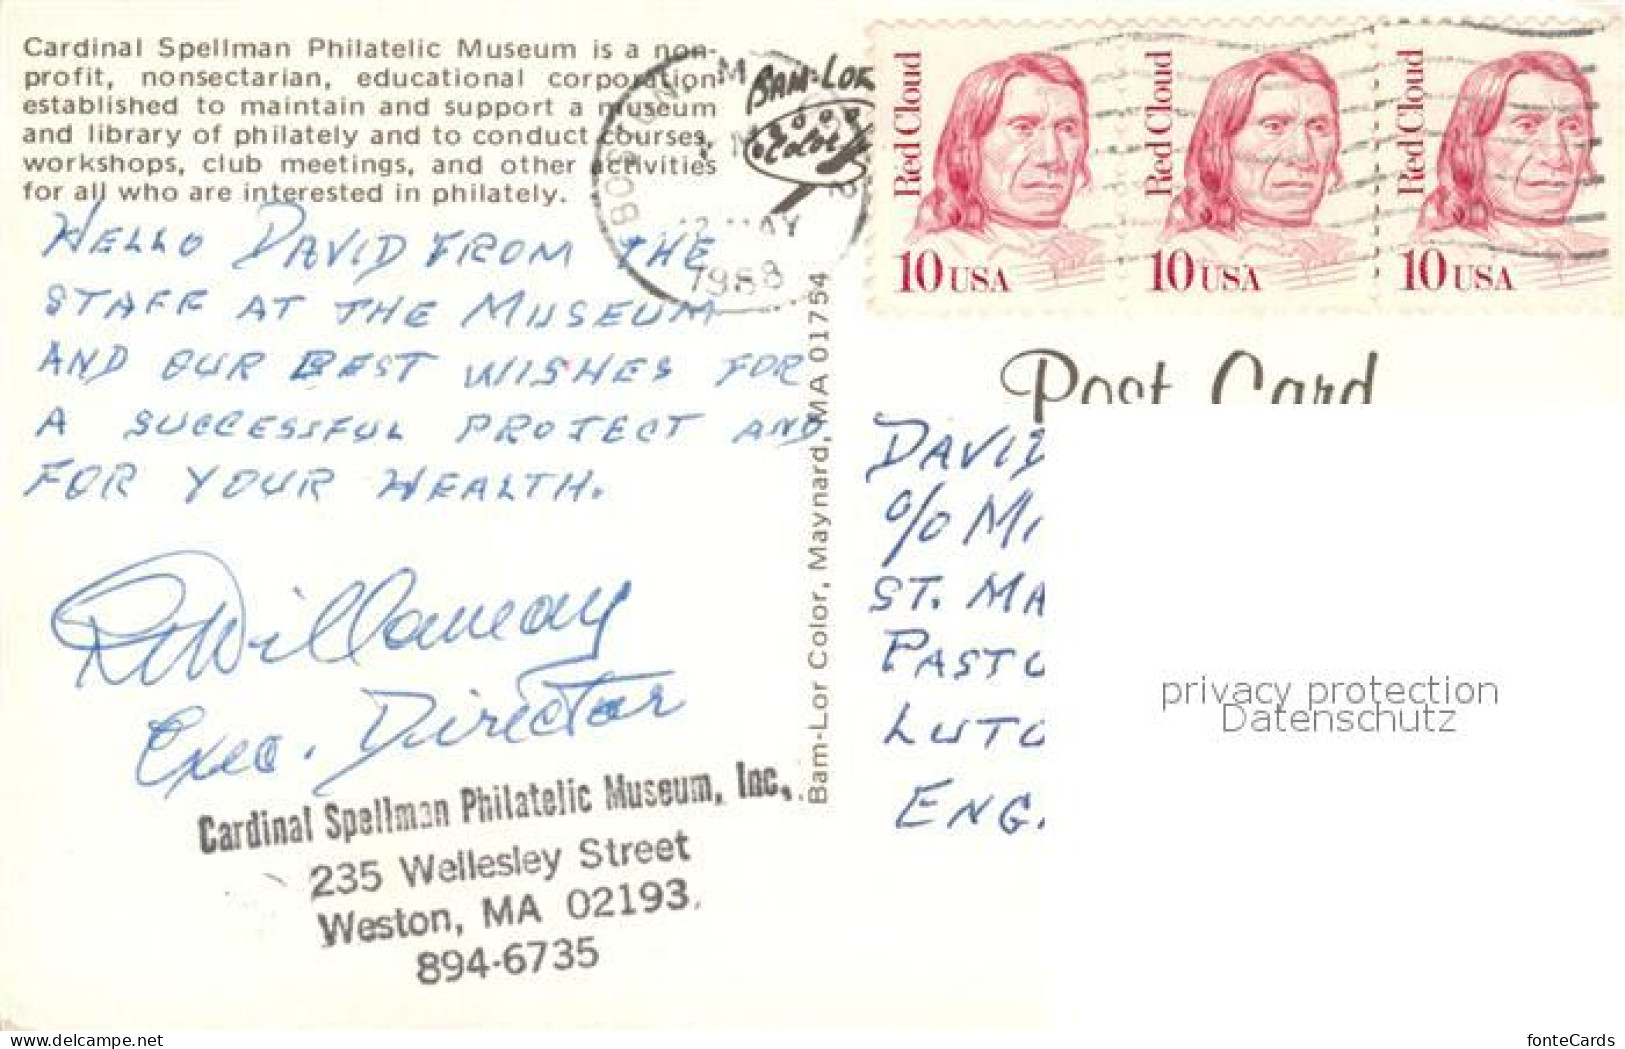 Cardinal Spellman Philatelic Museum is a non-
profit, nonsectarian, educational corporation
established to maintain and support a museum
and library of philately and to conduct courses,
workshops, club meetings, and other activities
for all who are interested in philately.
BAM-LOR
Color
MAY
1988
Red Cloud
10 USA
Red Cloud
10 USA
Red Cloud
10 USA
HELLO DAVID FROM THE
STAFF AT THE MUSEUM
AND OUR BEST WISHES FOR
A SUCCESSFUL PROJECT AND
FOR YOUR HEALTH.
Exec. Director
Cardinal Spellman Philatelic Museum, Inc.
235 Wellesley Street
Weston, MA 02193.
894-6735
Bam-Lor Color, Maynard, MA 01754
Post Card
DAVID
c/o MI
ST. MA
PASTO
LUTO
ENG.
privacy protection
Datenschutz
www.delcampe.net
fonteCards